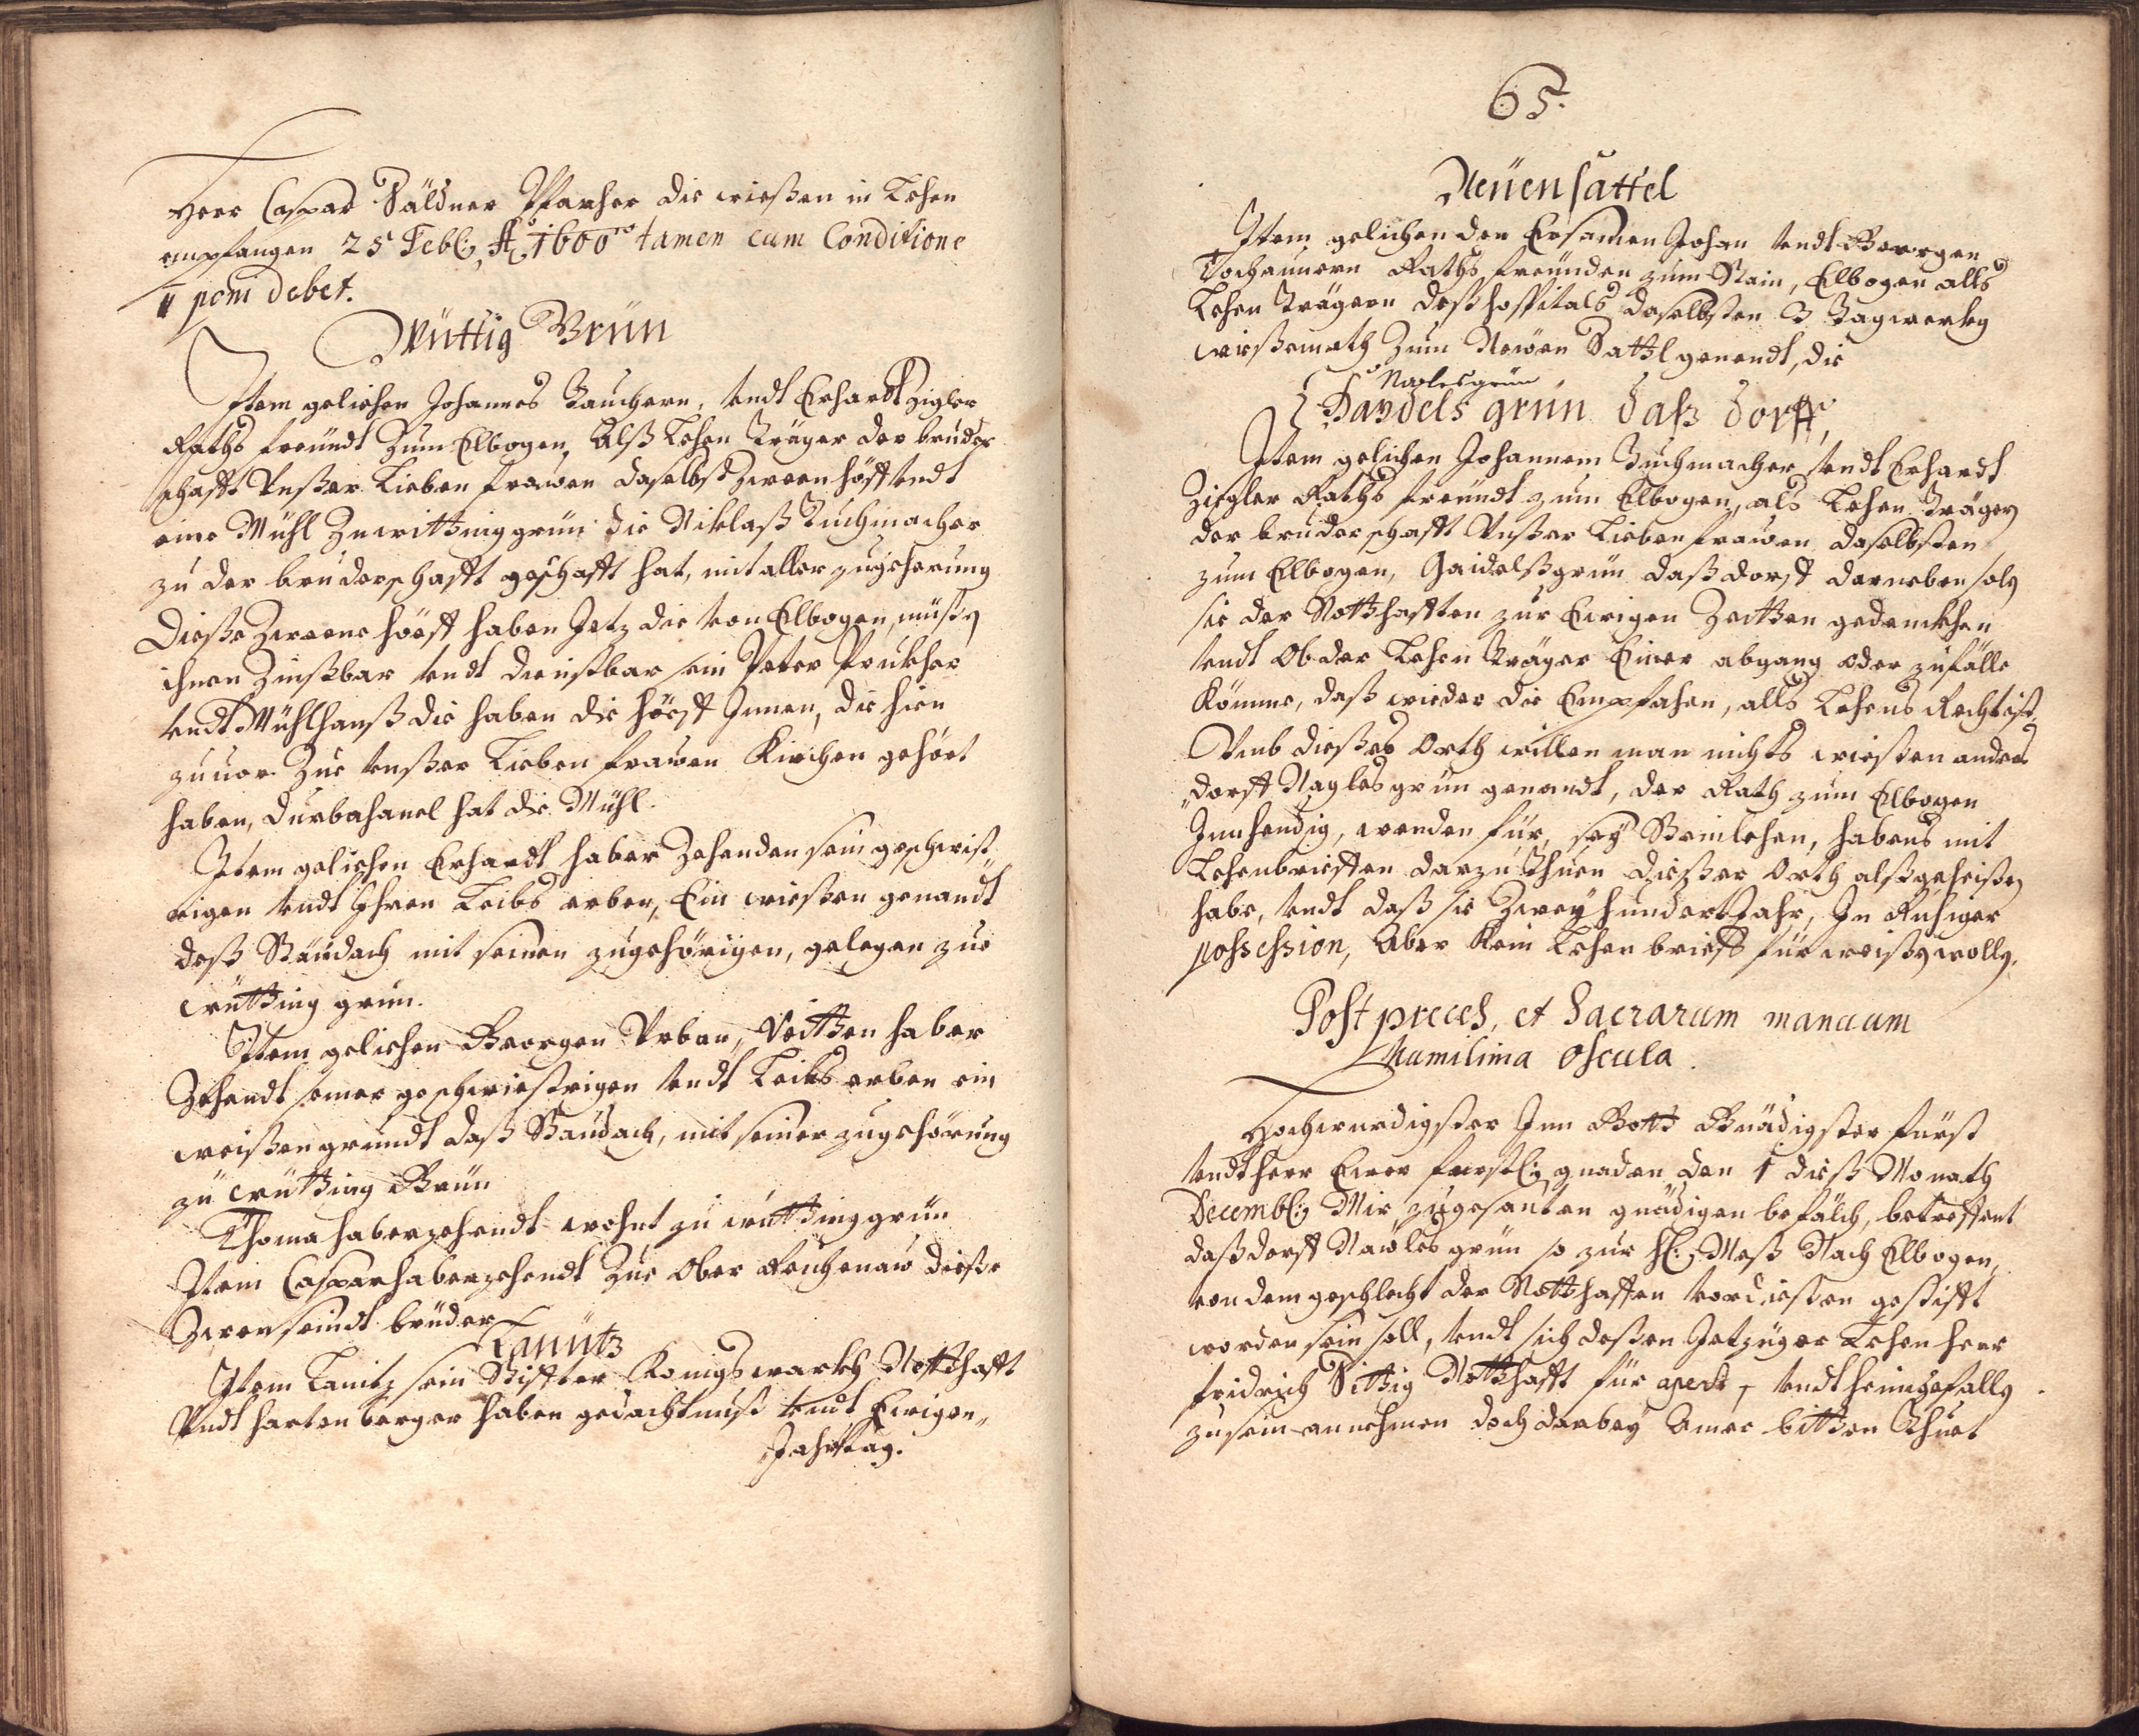 Herr Caspar Säldner Pfarher die wießen in Lehen
empfangen 25 Febl: A:o 1600.to tamen cum Conditione
poni debet.
Wüttig Grün
Item gelichen Johannes Bauchern, vndt Erhardt Zigler
Raths freundt Zum Elbogen, Alß Lehen Träger der bruder
schafft Vnßer Lieben frawen daselbst Zween höff vndt
eine Mühl Zu wittniggrün die Niklaß Tuchmacher
zu der bruderschafft geschafft hat, mit aller zugeherung
Dieße Zweene höest haben Jetz die von Elbogen, müßen
ihnen Zinßbar vndt dienstbar sein Peter Prukher
vndt Mühlhanß die haben die höest Innen, die hien
zuuor Zue vnßer Lieben frawen Kirchen gehört
haben, Durbahanel hat die Mühl.
Item gelichen Erhardt haber Zehenden sein geschwist
rigen vndt Ihren Leibs erben, Ein wießen genandt
deß Staudach mit seinen zugehörigen, gelegen zue
wütting grün.
Item gelichen Georgen Vrban, Veitten haber
Zehendt seiner geschwiestrigen vndt Leibs erben ein
weißen grundt daß Staudach, mit seiner zugehörung
zu wütting Grün
Thoma haberzehendt wohnt zu wüttinggrün
Item Casparhaberzehendt Zue Ober Reichenaw dieße
Zween seindt brüder
Lanütz
Item Lanitz sein Stiffter Konigswarth Notthafft
Vndt hartenberger haben gedachtnuß vndt Ewigen
Jahrtag.
65.
Neüensattel
Item gelichen den Ersamen Johan vndt Georgen
Tochauuern Raths freunden zum Stain, Elbogen alls
Lehen Trägern deß hospitals daselbsten 3 Tagwerkg
wießemath Zum Newen Sattl genendt, die
Naglesgrün
Dandels grün daß dorff,
Item gelichen Johannem Tuchmacher vndt Erhardt
Ziegler Raths freundt zum Elbogen, als Lehen Träger
der bruderschafft Vnßer Lieben frawen daselbsten
zum Elbogen, Haidelßgrün daß dorff darneben solg
sie der Notthafften zur Ewigen Zeitten gedenckhen
vndt Ob der Lehen Träger Einer abgang oder zufälle
Kömme, daß wieder die Empfahen, alls Lehens Recht ist
Vmb dießes Orth willen man nichts wießen anders
dorff Naglesgrün genandt, der Rath zum Elbogen
Innhendig, wenden für, seÿ Stainlehen, habens mit
Lehenbriefften darzu thuen dießer Orth alßgeheißen
habe, vndt daß sie Zweÿ hundert Jahr, In Ruhiger
possession, Aber Kein Lehen brieff fürweißen wolle.
Post preces, et Sacrarum manuum
humilima Oscula.
Hochwurdigster Inn Gott Gnädigster fürst
vndt herr Ewer furstl: gnaden den 1 dieß Monath
Decembl: Mir zugesanten gnädigen befälch, betreffent
daß dorff Nawles grün so zur hl: Meß Nach Elbogen,
von dem geschlecht der Notthafften vordießen gestifft
worden sein soll, vndt sich deßen Jetzüger Lehen herr
fridrich Sittig Notthafft für apert, vndt heimbgefalln
zu sein annehmen doch darbeÿ Amer bitten thuet